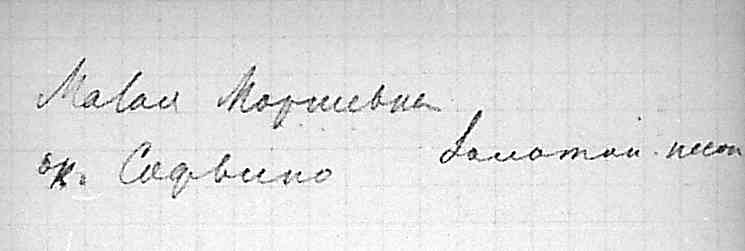 Малая Моршевка
ок. Садвино
Золотой песок